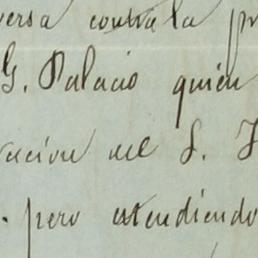 versa contra la pr
G. Palacio quien
racion del S. F
. pero estendiendo